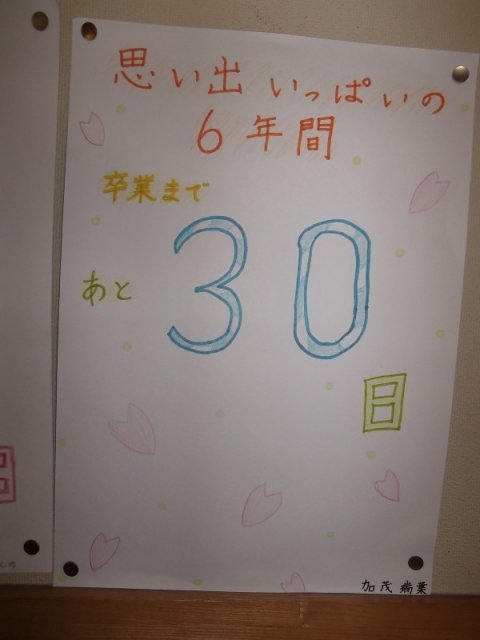 思い出いっぱいの
6年間
卒業まで
あと 30
日
加茂